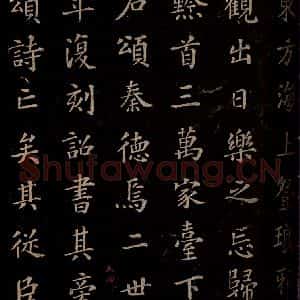 東方海上登琅邪
觀出日樂之忘歸
黔首三萬家臺下
石頌秦德焉二世
年復刻詔書其旁
頌詩亡矣其從臣
Shufawang.CN